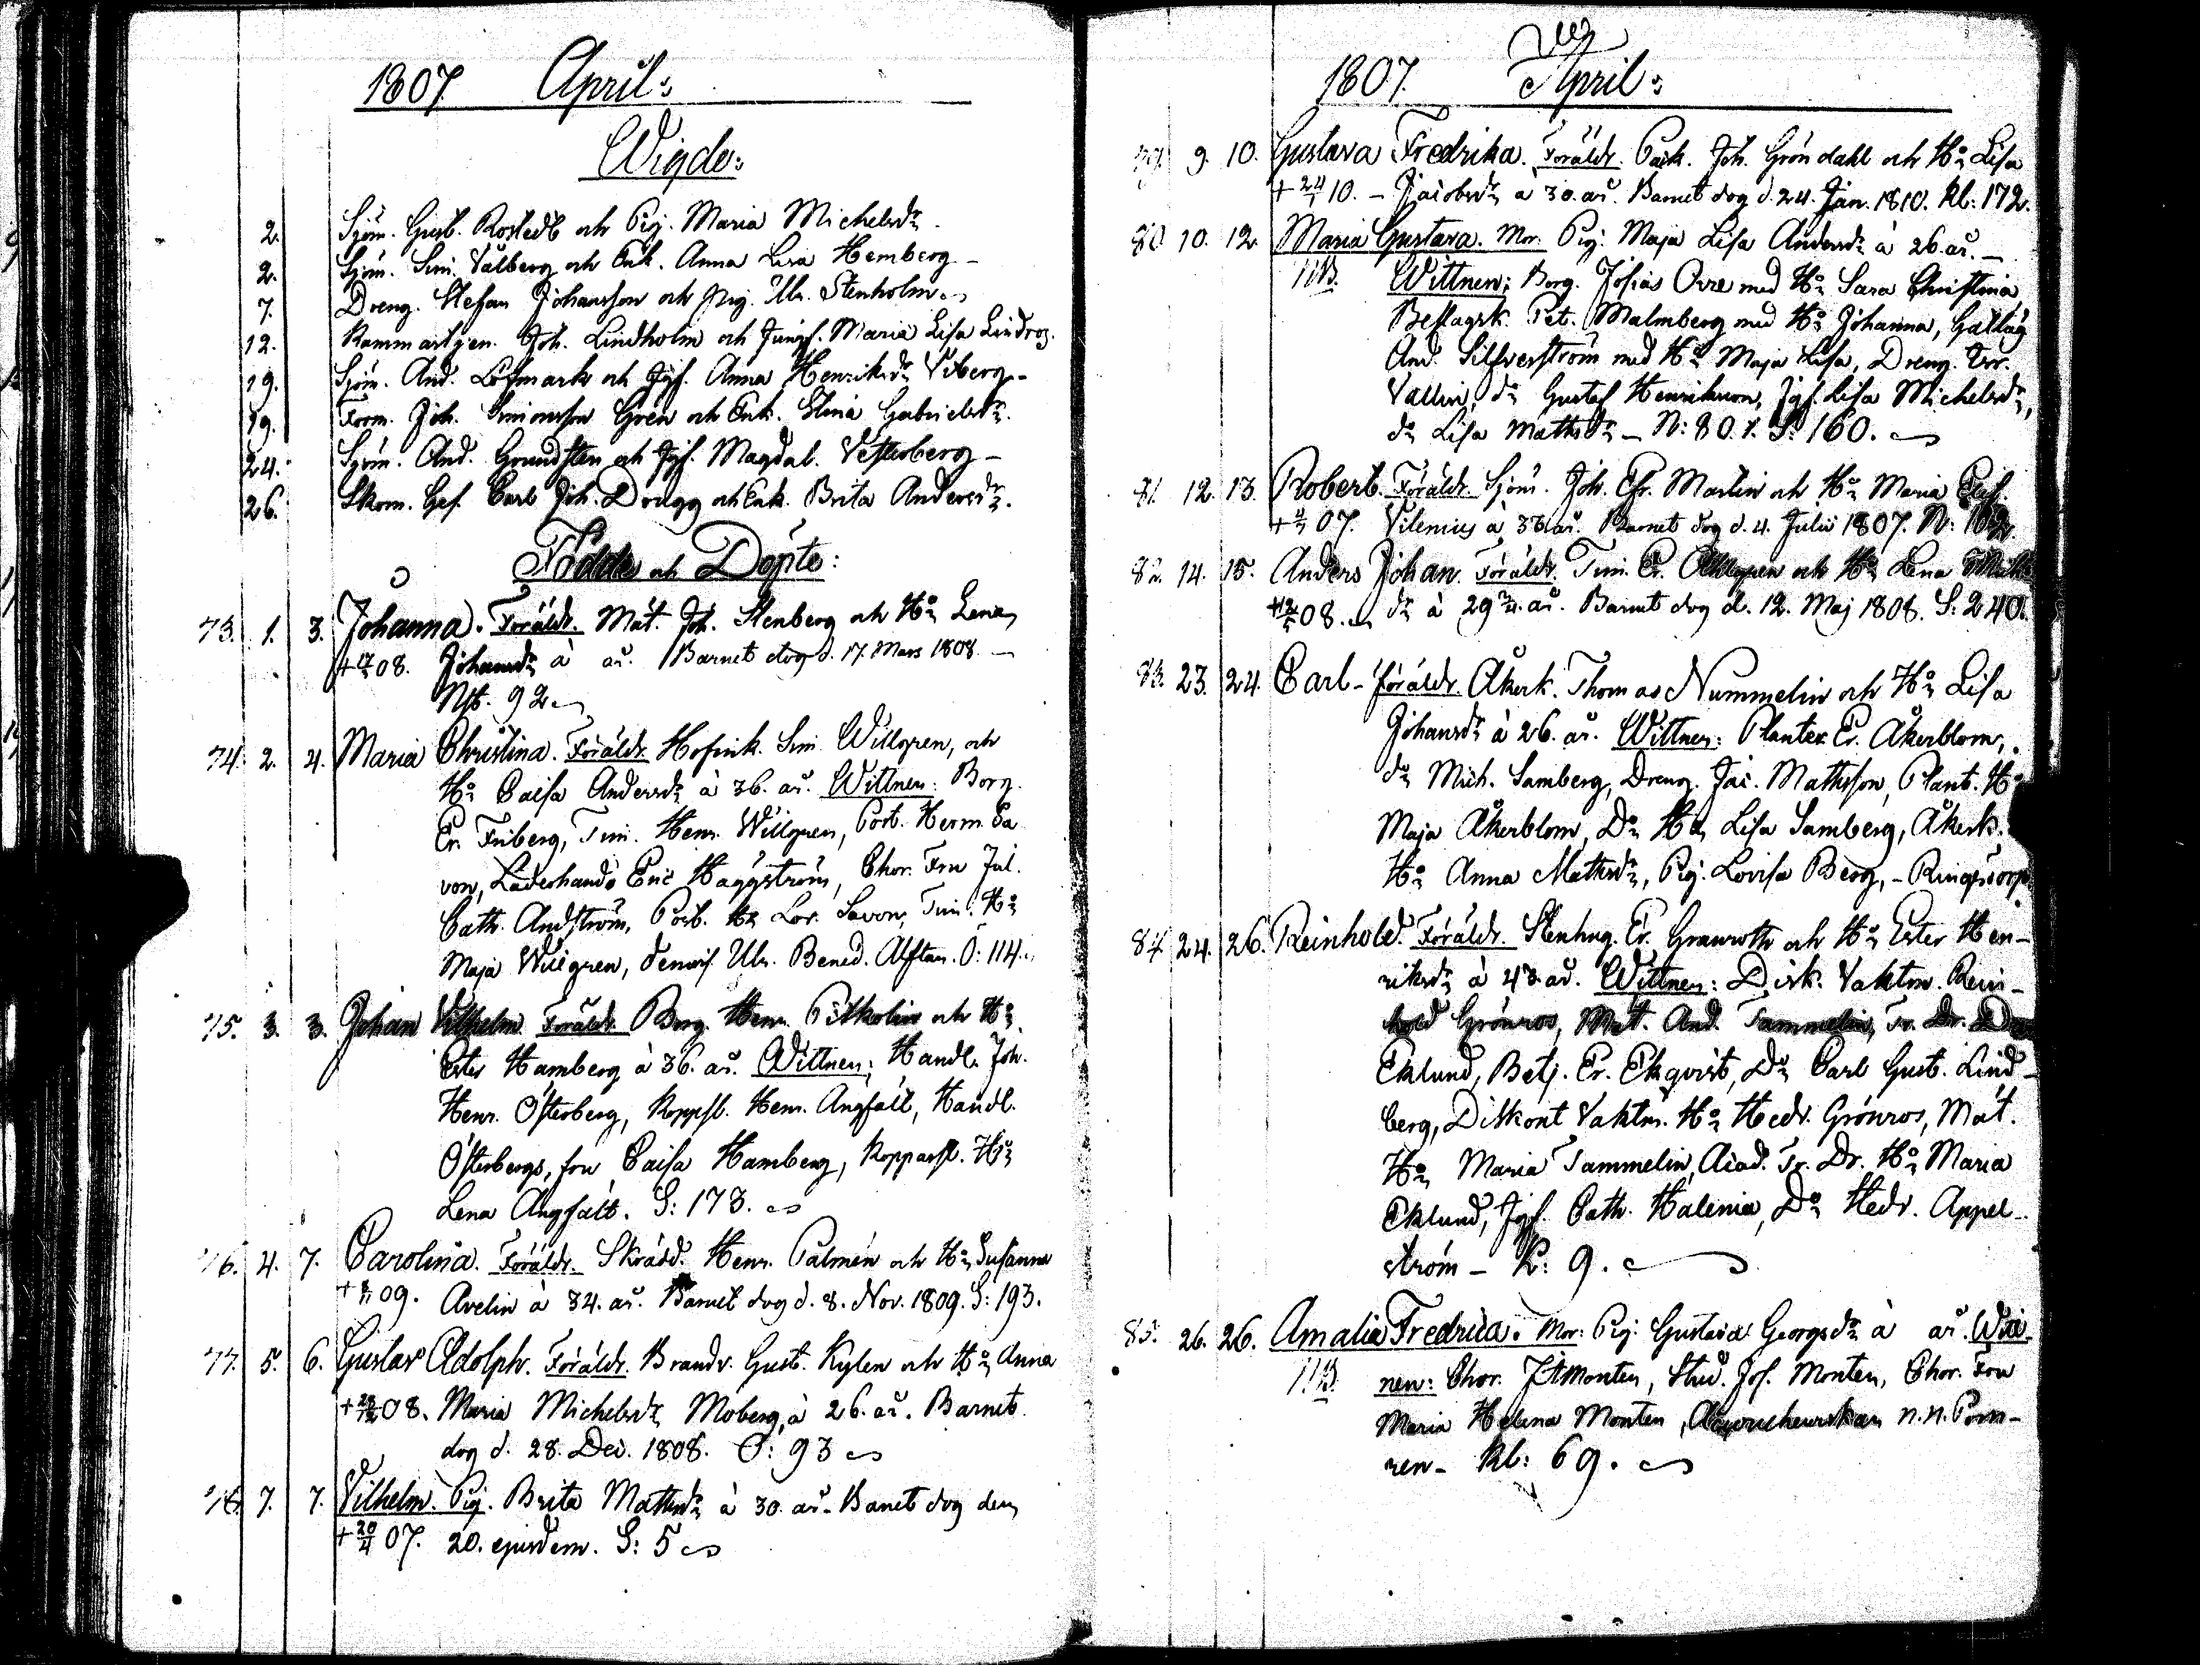 1807. April:
Wigde:
2. Sjöm. Gust. Rostedt och Pig. Maria Michelsdr.
2. Sjöm. Sim. Valberg och Enk. Anna Lisa Hemberg -
7. Dreng. Stefan Johansson och Pig. Ulr. Stenholm
12. Joh. Lindholm och Jungf. Maria Lisa Lindros.
19. Sjöm. And. Löfmark och Jgf. Anna Henriksdr Viberg -
19. Form. Joh. Simonsson Grén och Enk. Stina Gabrielsdr.
24. Sjöm. And. Grundsten och Jgf. Magdal. Vesterberg -
26. Skom. Ges. Carl Joh. Drugg och Enk. Brita Andersdr.
Födde och Döpte:
73. 1. 3. Johanna. Föräldr. Mat. Joh. Stenberg och Ho Lena
+ 17/3 08. Johansdr à år. Barnet dog d. 17. Mars 1808. -
Nst. 92
74. 2. 4. Maria Christina. Föräldr. Hofmk. Sim. Willgren, och
Ho Caisa Andersdr à 36. år. Wittnen: Borg.
Er. Friberg, Tim. Henr. Willgren, Port. Herm. Sa
von, Läderhandl Eric Häggström, Chor. Fru Jul.
Cath. Andström, Port. Ho Lov. Savon, Tim. Ho
Maja Willgren, demois. Ulr. Bened. Alftan. Ö: 114.
75. 3. 3. Johan Vilhelm. Föräldr. Borg. Henr. Pitkolin och Ho
Ester Hamberg à 36. år. Wittnen: Handl. Joh.
Henr. Österberg, Koppsl. Henr. Angfält, Handl.
Österbergs, fru Caisa Hamberg, Kopparsl. Ho
Lena Angfält. S: 173.
76. 4. 7. Carolina. Föräldr. Skrädd. Henr. Palmén och Ho Susanna
+ 8/11 09. Avelin à 34. år. Barnet dog d. 8. Nov. 1809. S: 193.
77. 5. 6. Gustav Adolph. Föräldr. Brandv. Gust. Kylen och Ho Anna
+ 28/12 08. Maria Michelsdr Moberg à 26. år. Barnet
dog d. 28. Dec. 1808. Ö: 93
78. 7. 7. Vilhelm. Pig. Brita Mathsdr à 30. år. Barnet dog den
+ 20/4 07. 20. ejusdem. S: 5
1807. April:
79. 9. 10. Gustava Fredrika. Föräldr. Pack. Joh. Gröndahl och Ho Lisa
+ 24/1 10. - Jacobsdr à 30. år. Barnet dog d. 24. Jan. 1810. Kl: 172.
80. 10. 12. Maria Gustava. Mor. Pig. Maja Lisa Andersdr à 26. år. -
Wittnen: Borg. Josias Orre med Ho Sara Christina
Beslagsk. Pet. Malmberg med Ho Johanna,
And. Silfverström med Ho Maja Lisa, Dreng.
Vallin, do Gustaf Henriksson, Jgf. Lisa Michelsdr,
do Lisa Mathsdr - N: 80. S: 160.
81. 12. 13. Robert. Föräldr. Sjöm. Joh. Chr. Martin och Ho Maria
+ 4/7 07. Vilenius à 36. år. Barnet dog d. 4. Julii 1807. N:
82. 14. 15. Anders Johan. Föräldr. Tim. Er. och Ho Lena
+ 12/5 08. dr à 29 3/4. år. Barnet dog d. 12. Maj 1808. S: 240.
83. 23. 24. Carl - föräldr. Åkerk. Thomas Nummelin och Ho Lisa
Johansdr à 26. år. Wittnen: Planter Er. Åkerblom,
do Mich. Samberg, Dreng. Jac. Mathsson, Plant. Ho
Maja Åkerblom, Do Ho Lisa Samberg, Åkerk.
Ho Anna Mathsdr, Pig. Lovisa Berg, -
84. 24. 26. Reinhold. Föräldr. Stenhug. Er. Granroth och Ho Ester Hen-
riksdr à 43. år. Wittnen: Disk. Vaktm. Rein-
hold Grönros, Mat. And. Tammelin, Tr. Dr.
Eklund, Betj. Er. Ekqvist, Do Carl Gust. Lind-
berg, Diskont Vaktm. Ho Hedv. Grönros, Mat.
Ho Maria Tammelin, Acad. Tr. Dr. Ho Maria
Eklund, Jgf. Cath. Halenia, Do Hedv. Appel-
ström - K: 9.
85. 26. 26. Amalia Fredrica. Mor: Pig. Gustava Georgsdr à år. Witt-
nen: Chor. Monten, Stud. Jos. Monten, Chor. Fru
Maria Helena Monten, n. n. Pom-
ren - Kl: 69.